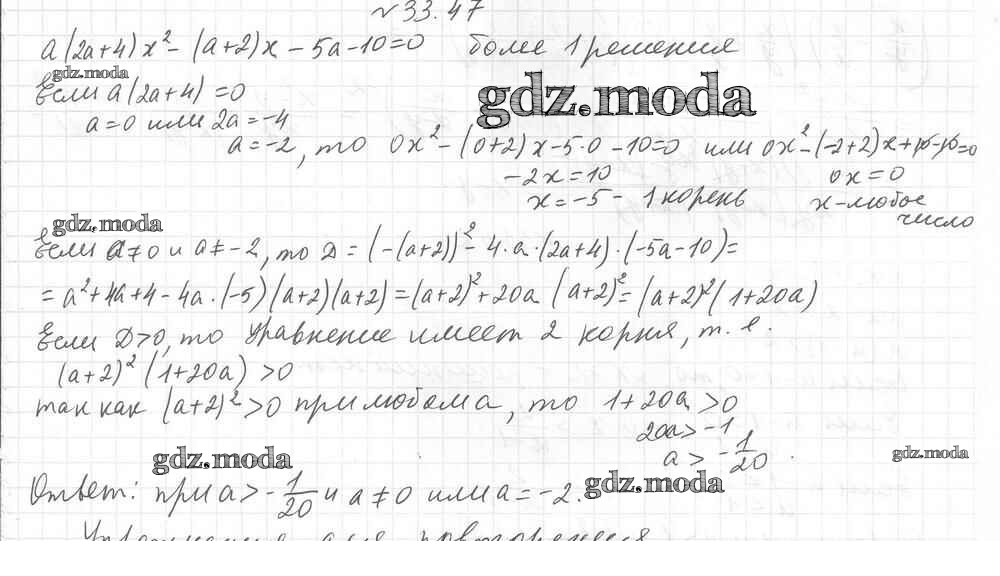 №33.47
a(2a+4)x² - (a+2)x - 5a - 10 = 0 более 1 решения
gdz.moda
Если a(2a+4) = 0
gdz.moda
a=0 или 2a=-4
a=-2, то 0x² - (0+2)x - 5·0 - 10=0 или 0x² - (-2+2)x + 10 - 10 = 0
-2x = 10 0x = 0
x = -5 - 1 корень x - любое
число
gdz.moda
Если a≠0 и a≠-2, то D = (-(a+2))² - 4·a·(2a+4)·(-5a-10) =
= a²+4a+4 - 4a·(-5)(a+2)(a+2) = (a+2)² + 20a (a+2)² = (a+2)²(1+20a)
Если D>0, то уравнение имеет 2 корня, т. е.
(a+2)² (1+20a) >0
так как (a+2)² >0 при любом a, то 1+20a >0
20a > -1
gdz.moda a > - 1/20 . gdz.moda
Ответ: при a > - 1/20 и a ≠ 0 или a = -2. gdz.moda